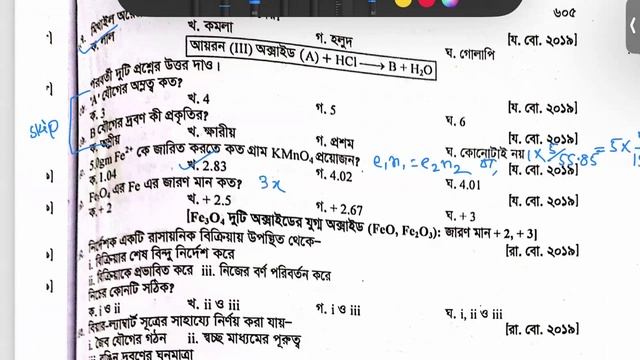 ৬০৫
ক. লাল
খ. কমলা
গ. হলুদ
ঘ. গোলাপি
[য. বো. ২০১৯]
আয়রন (III) অক্সাইড (A) + HCl → B + H₂O
পরবর্তী দুটি প্রশ্নের উত্তর দাও।
'A' যৌগের অম্লত্ব কত?
[য. বো. ২০১৯]
ক. 3
খ. 4
গ. 5
ঘ. 6
skip
B যৌগের দ্রবণ কী প্রকৃতির?
[য. বো. ২০১৯]
খ. ক্ষারীয়
গ. প্রশম
ঘ. কোনোটাই নয়
5.0gm Fe²⁺ কে জারিত করতে কত গ্রাম KMnO₄ প্রয়োজন?
e₁n₁ = e₂n₂
ক. 1.04
খ. 2.83
গ. 4.02
ঘ. 4.01
Fe₃O₄ এর Fe এর জারণ মান কত?
3x
[য. বো. ২০১৯]
ক. + 2
খ. + 2.5
গ. + 2.67
ঘ. + 3
[Fe₃O₄ দুটি অক্সাইডের যুগ্ম অক্সাইড (FeO, Fe₂O₃): জারণ মান + 2, + 3]
নির্দেশক একটি রাসায়নিক বিক্রিয়ায় উপস্থিত থেকে–
[রা. বো. ২০১৯]
i. বিক্রিয়ার শেষ বিন্দু নির্দেশ করে
ii. বিক্রিয়াকে প্রভাবিত করে iii. নিজের বর্ণ পরিবর্তন করে
নিচের কোনটি সঠিক?
ক. i ও ii
খ. ii ও iii
গ. i ও iii
ঘ. i, ii ও iii
বিয়ার-ল্যাম্বার্ট সূত্রের সাহায্যে নির্ণয় করা যায়–
[রা. বো. ২০১৯]
i. জৈব যৌগের গঠন ii. স্বচ্ছ মাধ্যমের পুরুত্ব
iii. রঙিন দ্রবণের ঘনমাত্রা